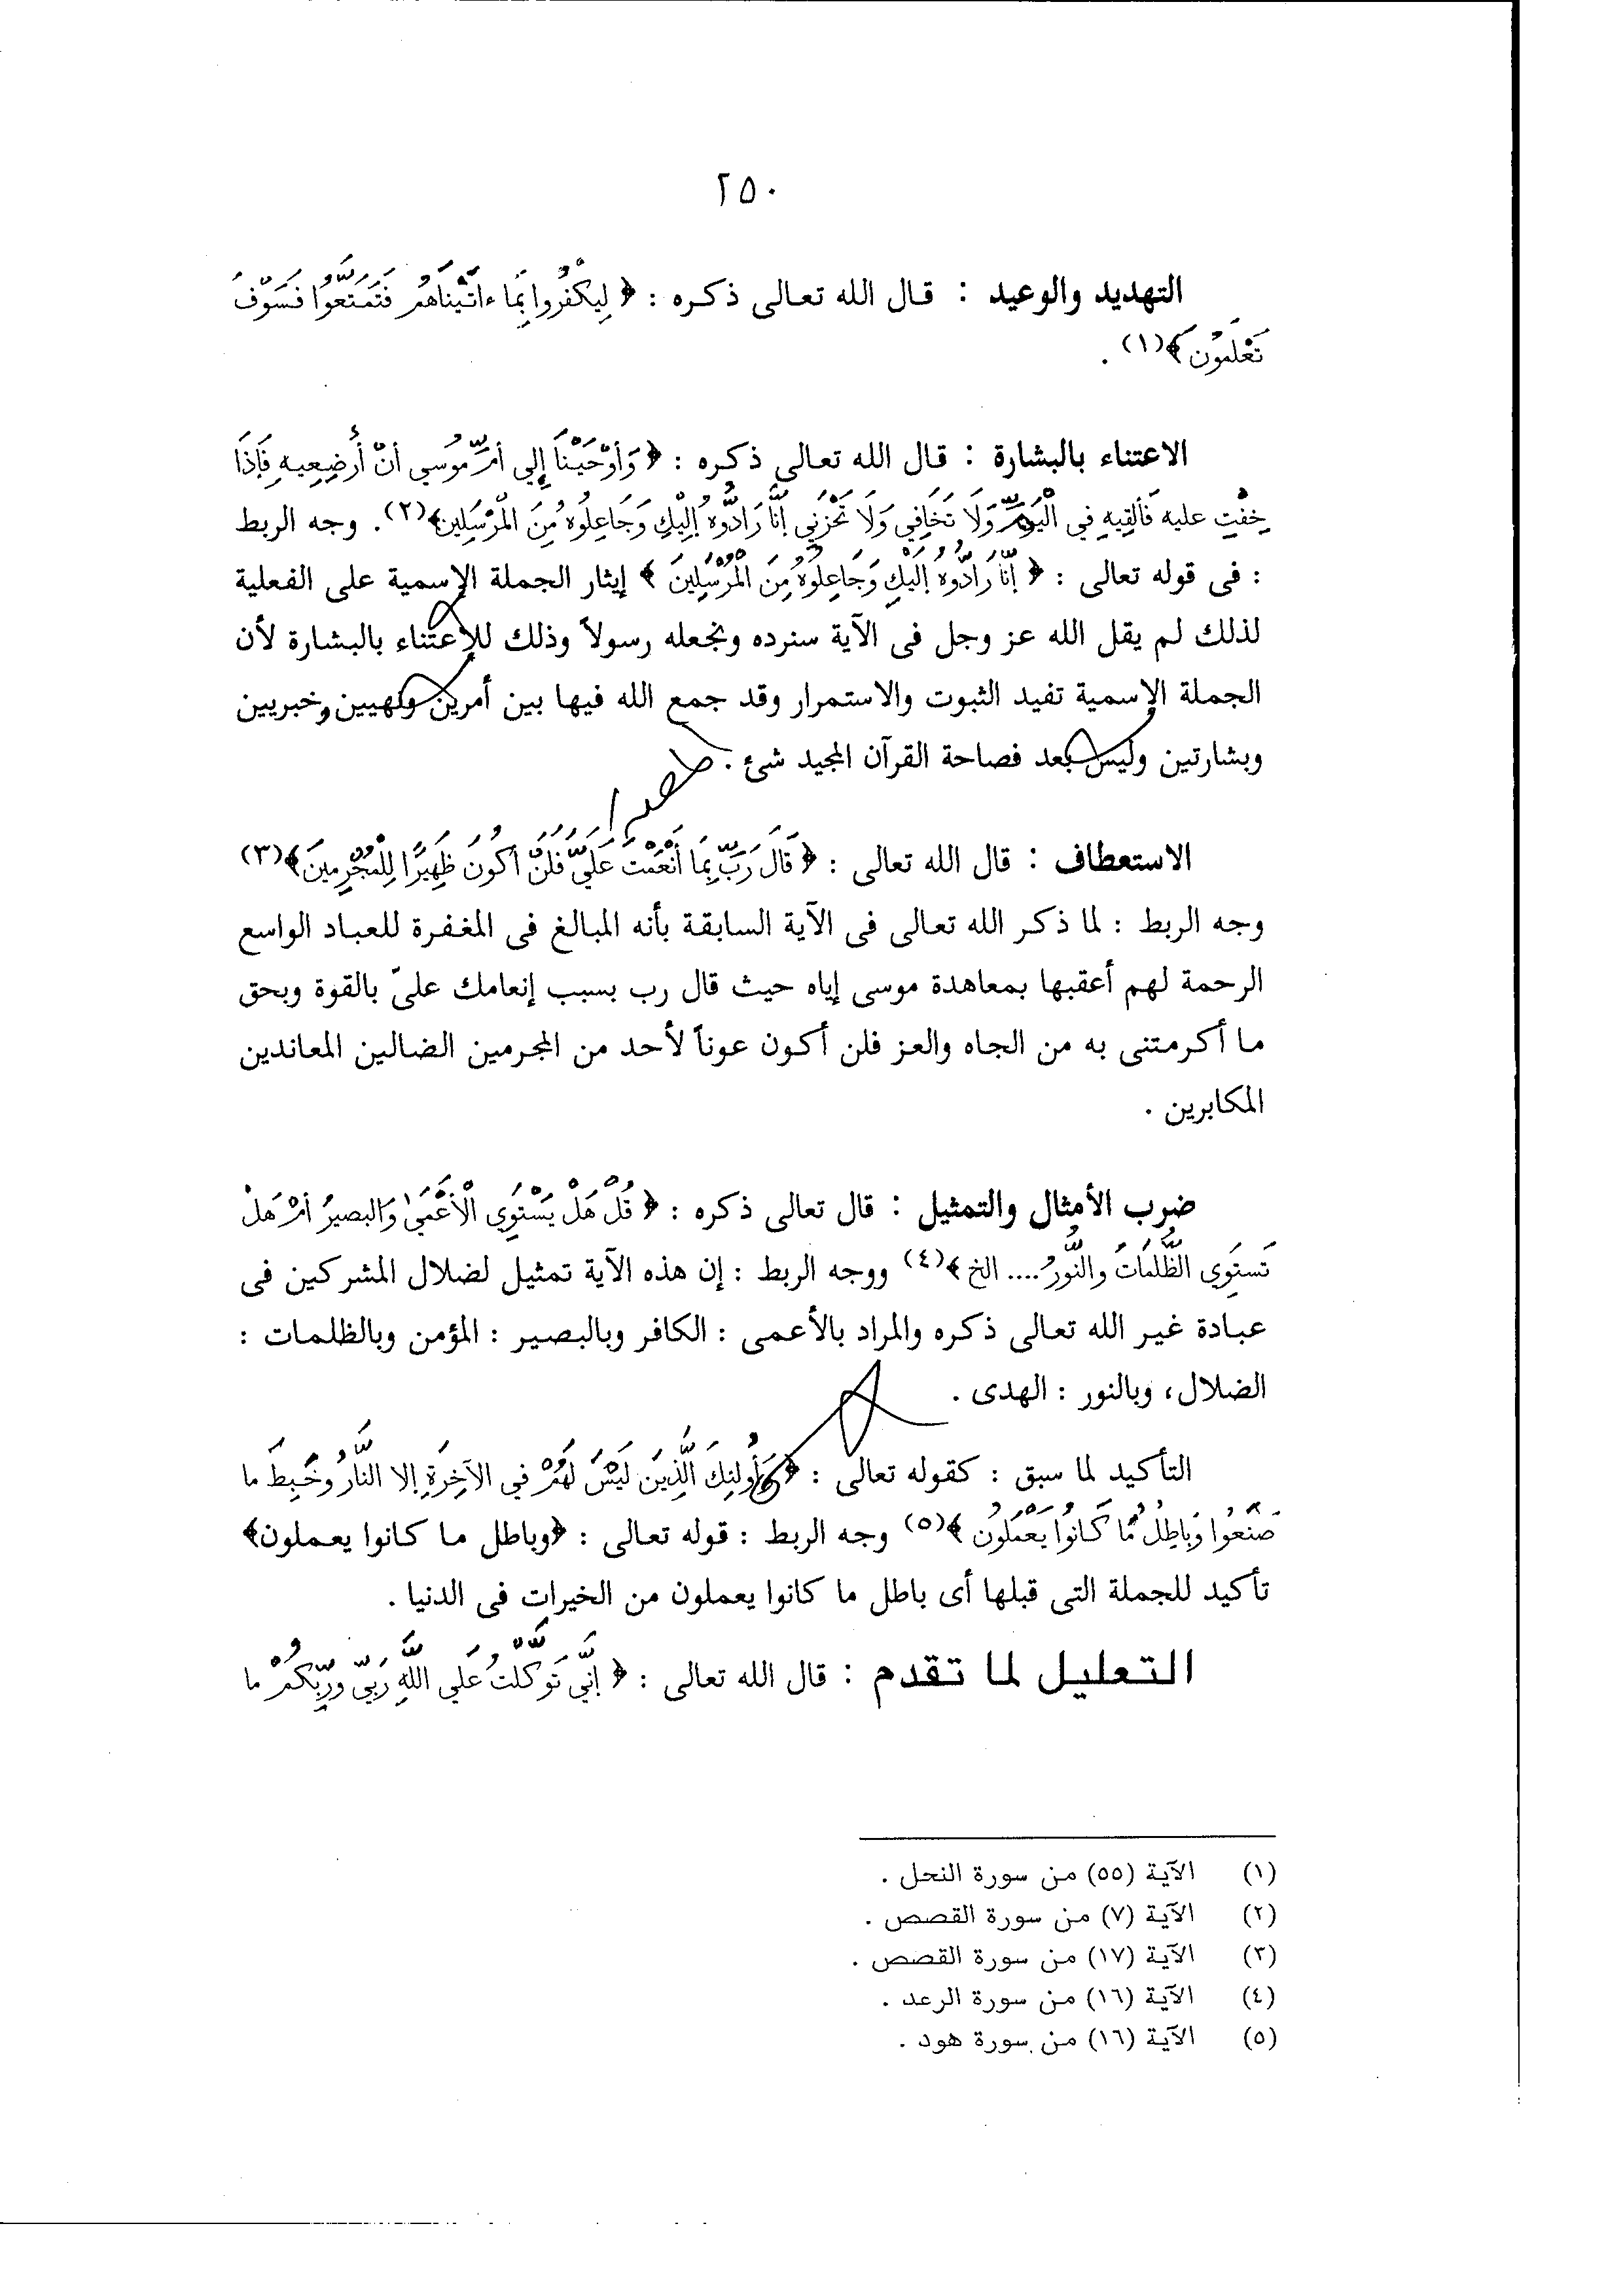 ٢٥٠
التهديد والوعيد : قال الله تعالى ذكره : ﴿ لِيَكْفُروا بِمَا ءاتَيْناهُمْ فَتَمَتَّعُوا فَسَوْفَ
تَعْلَمُونَ ﴾(١) .
الاعتناء بالبشارة : قال الله تعالى ذكره : ﴿ وَأَوْحَيْنَا إِلي أمِّ مُوسي أنْ أَرضِعِيهِ فَإِذَا
خِفْتِ عليه فَألقِيهِ في الْيَمِّ وَلَا تَخَافِي وَلَا تَحْزَنِي إنَّا رَادُّوهُ إلَيْكِ وَجَاعِلُوهُ مِنَ المُرْسَلِين﴾(٢). وجه الربط
: فى قوله تعالى : ﴿ إنَّا رَادُّوهُ إلَيْكِ وَجَاعِلُوهُ مِنَ الْمُرْسَلِينَ ﴾ إيثار الجملة الإسمية على الفعلية
لذلك لم يقل الله عز وجل فى الآية سنرده ونجعله رسولاً وذلك للإعتناء بالبشارة لأن
الجملة الإسمية تفيد الثبوت والاستمرار وقد جمع الله فيها بين أمرين ونهيين وخبريين
وبشارتين وليس بعد فصاحة القرآن المجيد شئ .
الاستعطاف : قال الله تعالى : ﴿ قَالَ رَبِّ بِمَا أَنْعَمْتَ عَلَيَّ فَلَنْ أكُونَ ظَهِيرًا لِلْمُجْرِمِينَ﴾(٣)
وجه الربط : لما ذكر الله تعالى فى الآية السابقة بأنه المبالغ فى المغفرة للعباد الواسع
الرحمة لهم أعقبها بمعاهدة موسى إياه حيث قال رب بسبب إنعامك علىّ بالقوة وبحق
ما أكرمتنى به من الجاه والعز فلن أكون عوناً لأحد من المجرمين الضالين المعاندين
المكابرين .
ضرب الأمثال والتمثيل : قال تعالى ذكره : ﴿ قُلْ هَلْ يَسْتَوِي الْأَعْمَىٰ وَالبصيرُ أمْ هَلْ
تَستَوِي الظُّلُمَاتُ والنُّورُ .... الخ ﴾(٤) ووجه الربط : إن هذه الآية تمثيل لضلال المشركين فى
عبادة غير الله تعالى ذكره والمراد بالأعمى : الكافر وبالبصير : المؤمن وبالظلمات :
الضلال، وبالنور : الهدى .
التأكيد لما سبق : كقوله تعالى : ﴿ أُولئِكَ الَّذِينَ لَيْسَ لَهُمْ في الآخِرَةِ إلا النَّارُ وحَبِطَ ما
صَنَعُوا وَباطِلٌ مَّا كَانُوا يَعْمَلُون ﴾(٥) وجه الربط : قوله تعالى : ﴿وباطل ما كانوا يعملون﴾
تأكيد للجملة التى قبلها أى باطل ما كانوا يعملون من الخيرات فى الدنيا .
التعليل لما تقدم : قال الله تعالى : ﴿ إنِّي تَوَكَّلْتُ عَلَي اللَّهِ رَبِّي ورَبِّكُمْ ما
(١) الآية (٥٥) من سورة النحل .
(٢) الآية (٧) من سورة القصص .
(٣) الآية (١٧) من سورة القصص .
(٤) الآية (١٦) من سورة الرعد .
(٥) الآية (١٦) من سورة هود .